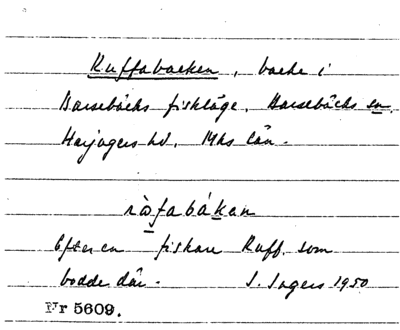 Ruffabacken, backe i
Barsebäcks fiskläge, Barsebäcks sn.
Harjagers hd, Mhs län.
fabákan
Efter en fiskare Ruff, som
bodde där. I. Ingers 1950
Nr 5609.